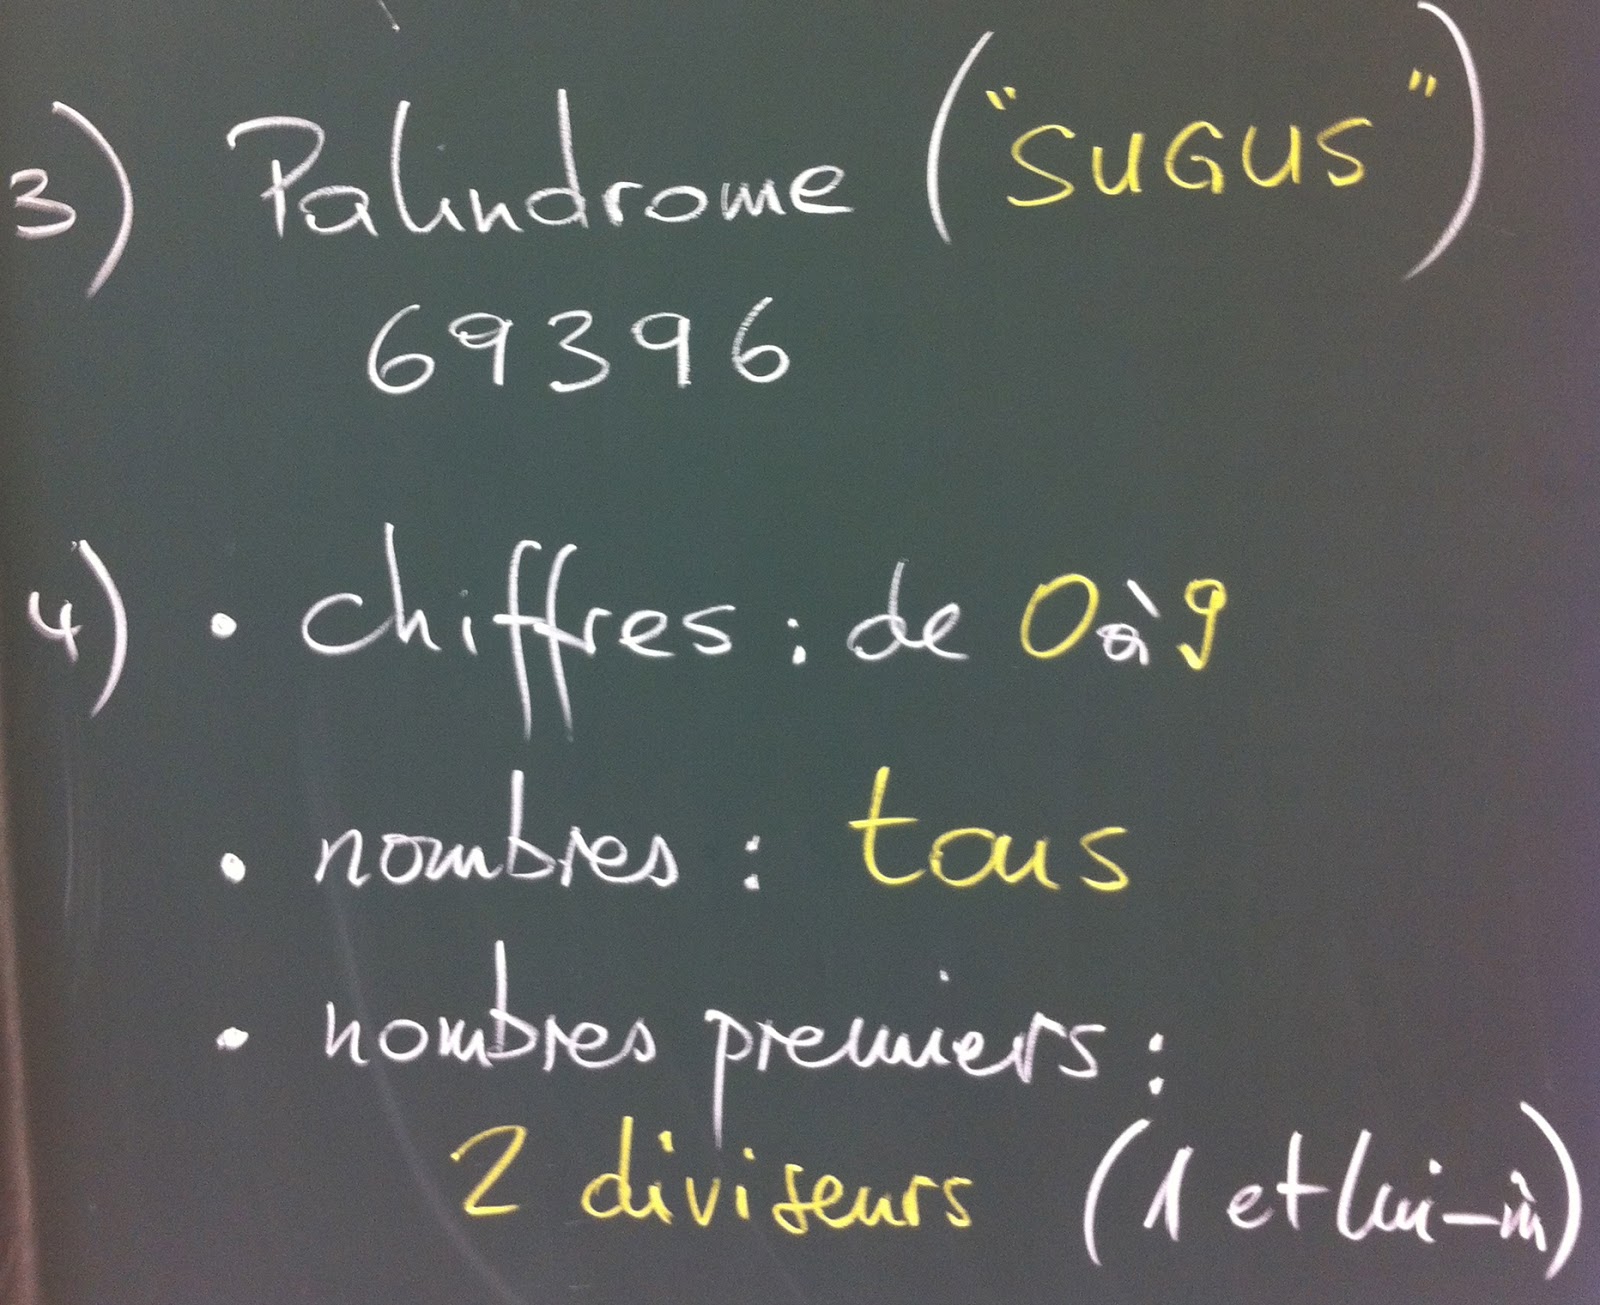 3) Palindrome ("SUGUS")
69396
4) • chiffres : de 0 à 9
• nombres : tous
• nombres premiers :
2 diviseurs (1 et lui-m̀)